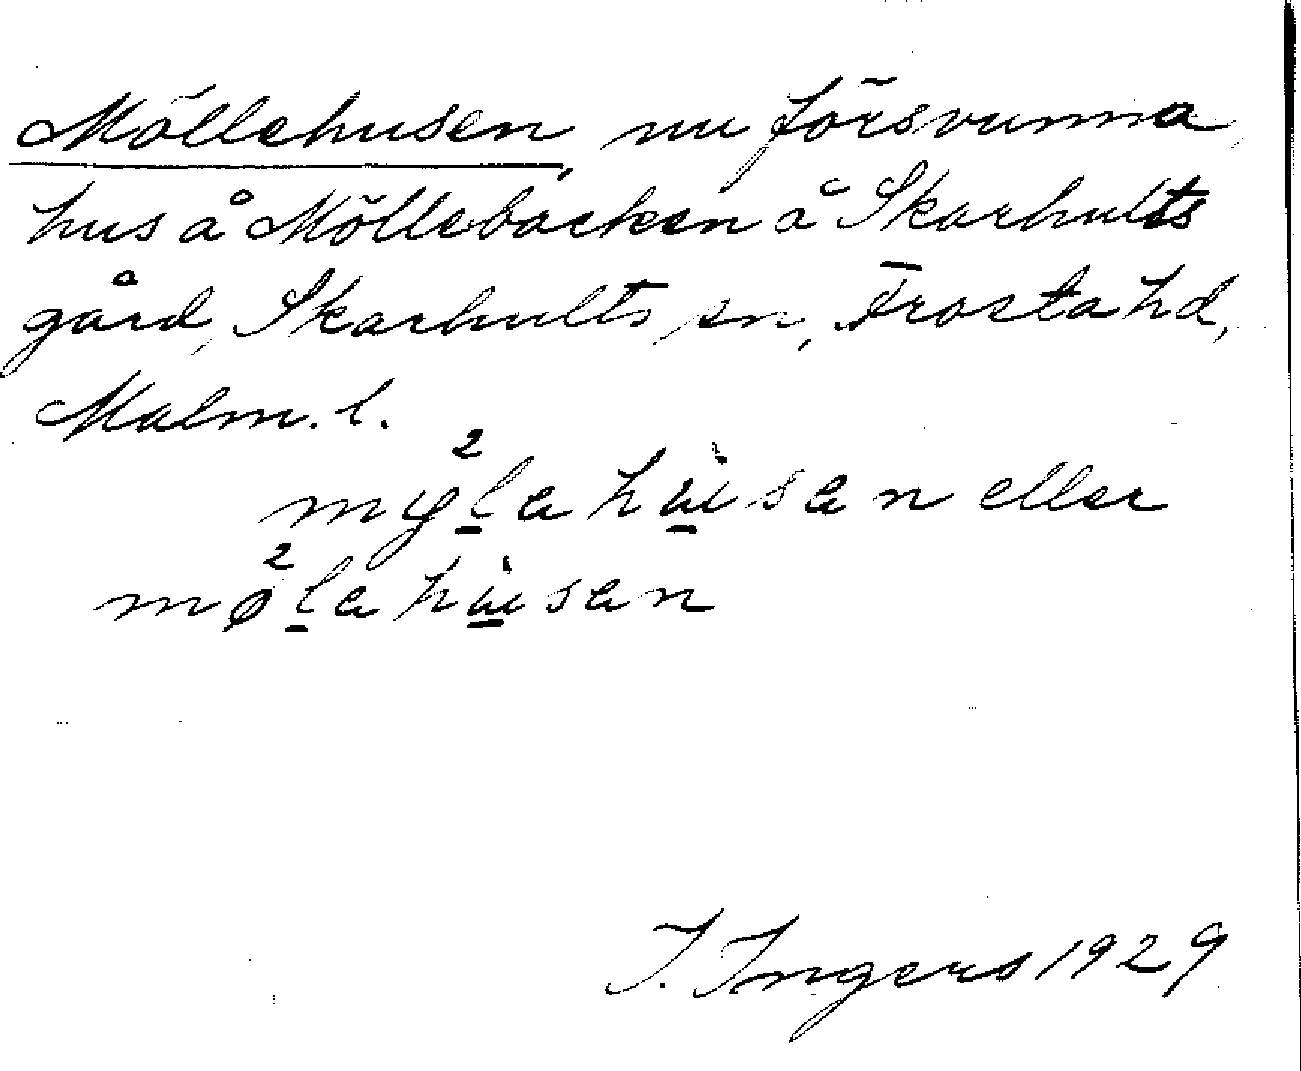 Möllehusen, nu försvunna
hus å Möllebacken å Skarhults
gård, Skarhults sn, Frosta hd,
Malm. l.
my²l̲ahù̲san eller
mø²l̲ahù̲san
I. Ingers 1929